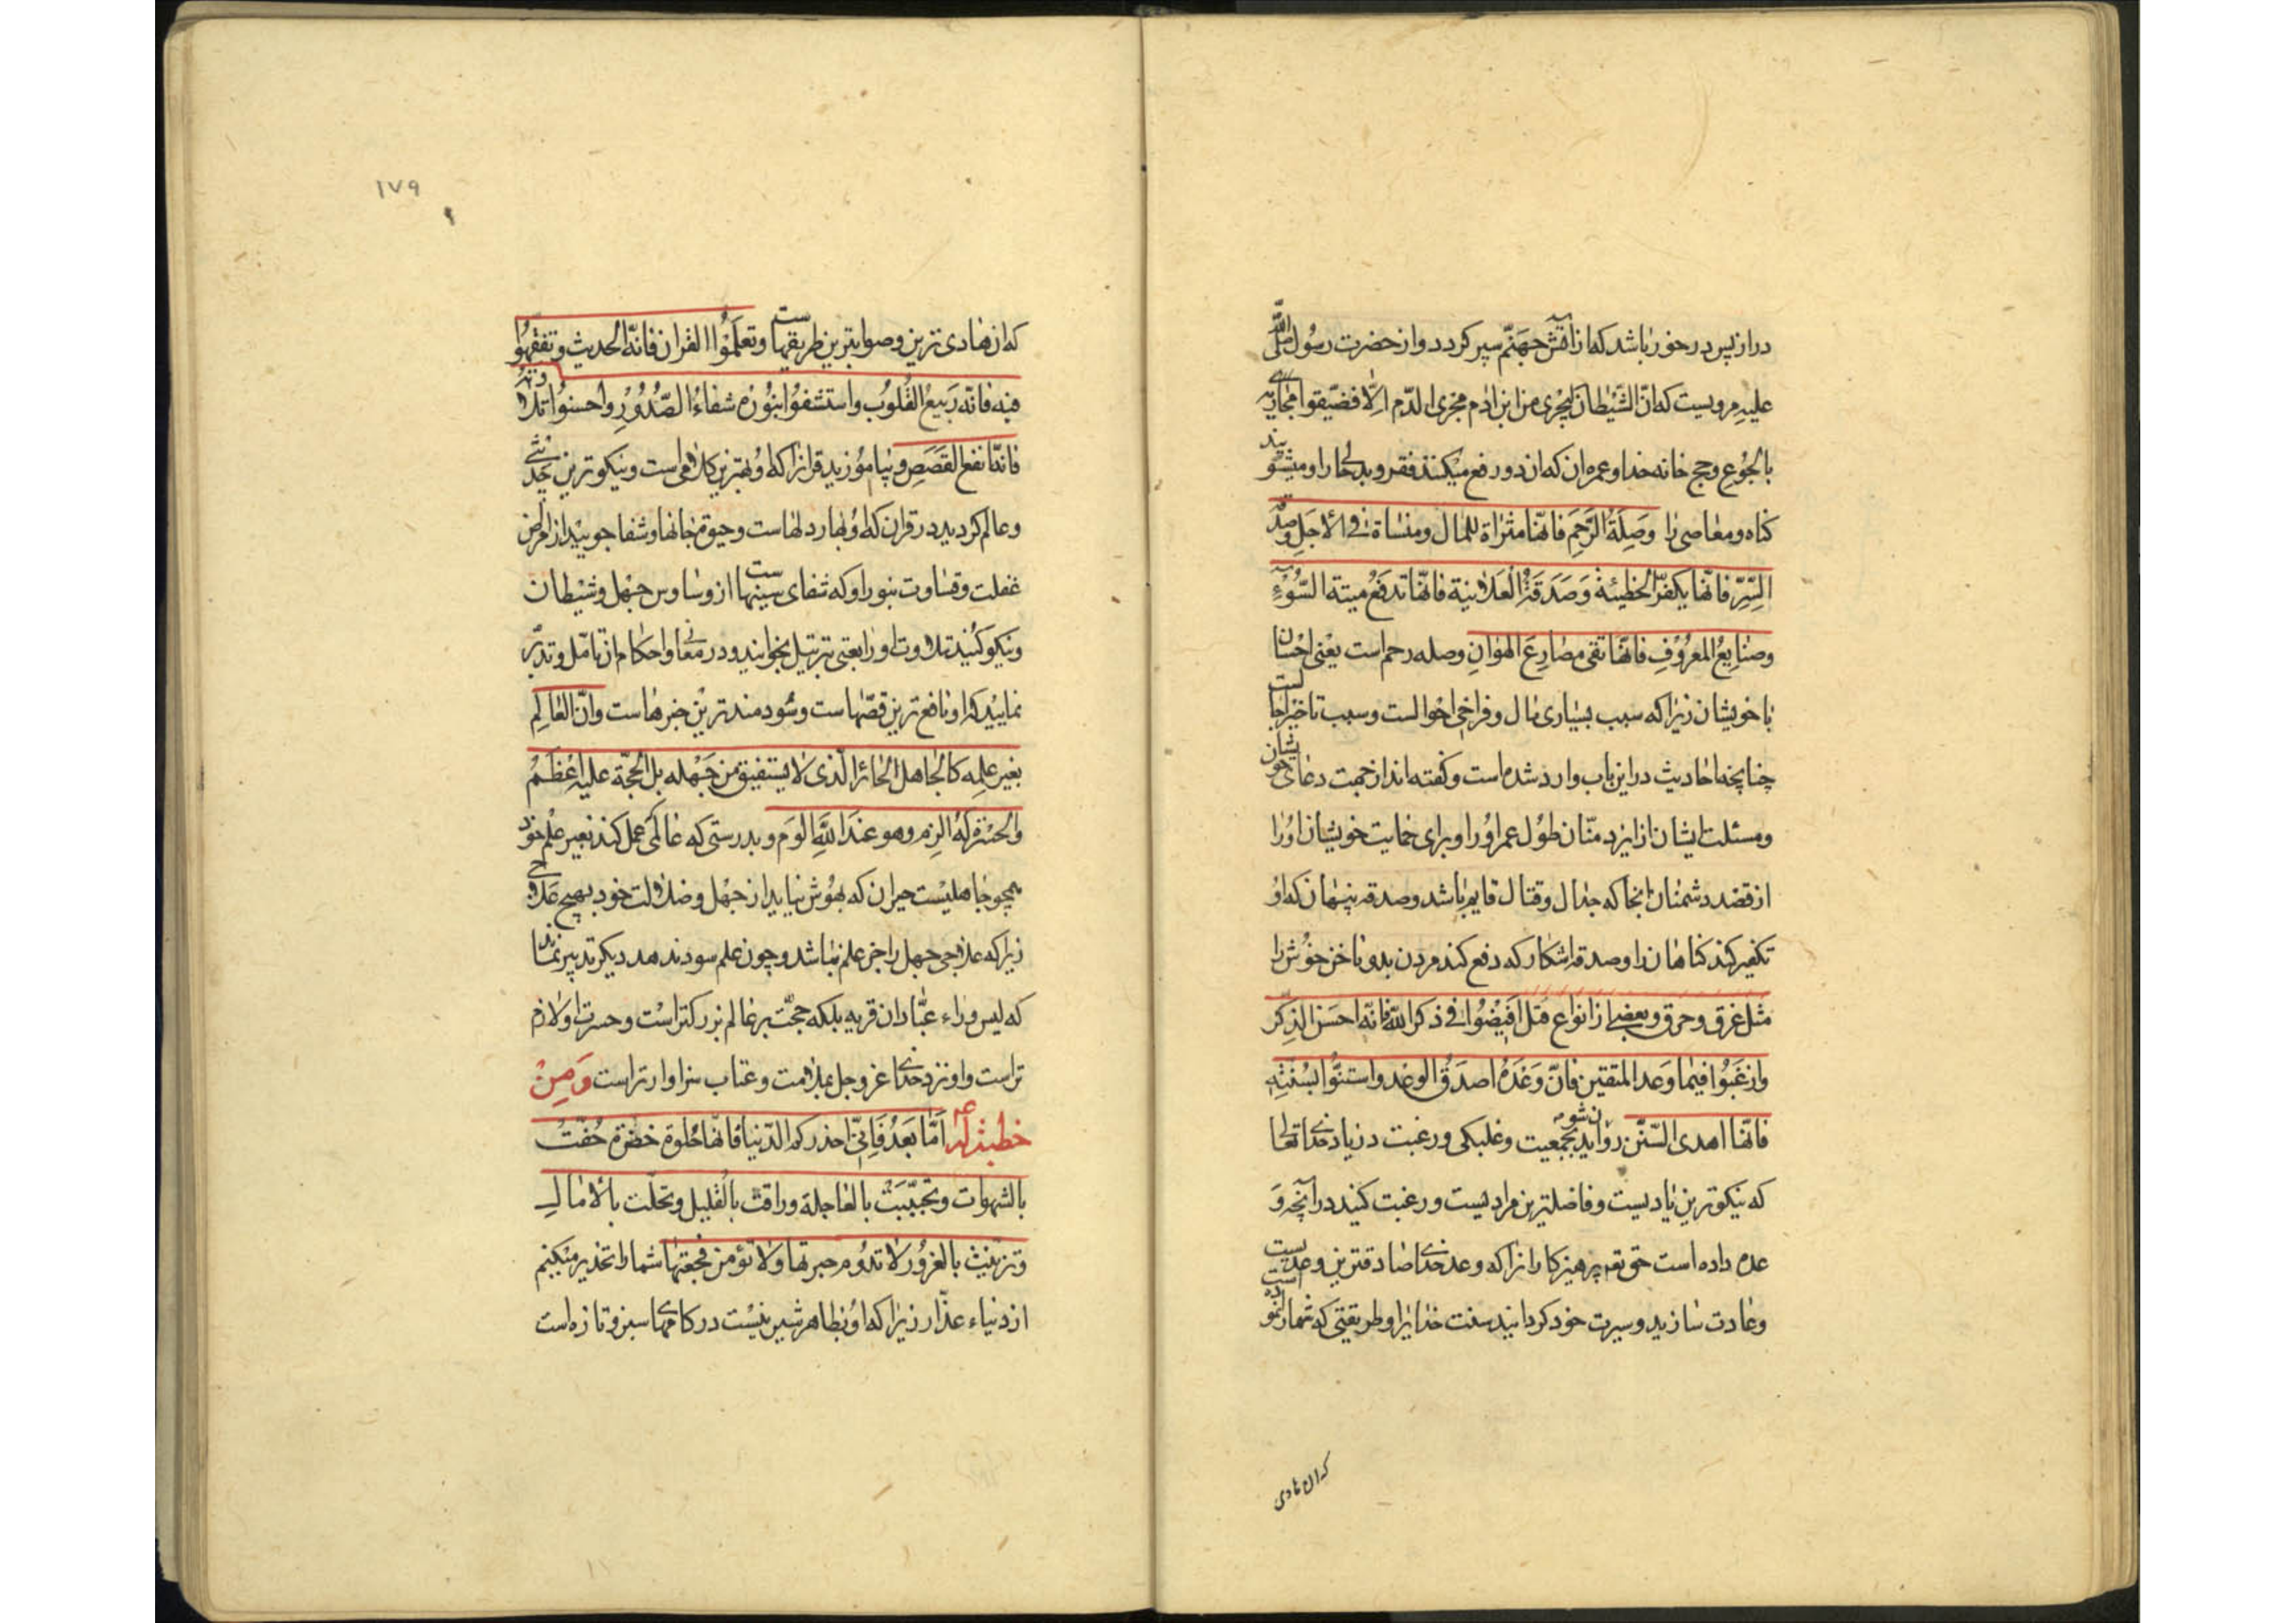 دراز پس در خور باشد که از آتش جهنم سپر کردد و از حضرت رسول الله صلی
علیه مرویست که انّ الشّیطان لیجری من ابن ادم مجری الدّم الا فضیّقوا مجاریه
بالجوع و حج خانه خدا و عمره ان که ان دو رفع میکنند فقر و بدحالی را و میشویند
کناه و معاصی را وَصِلَةُ الرَّحِمِ فانّها مثراة للمال ومنساة فی الاجل وصدقة
السِّرِّ فانّها یکفّر الخطیئة وَصَدَقَةُ العَلانیة فانّها تدفَعُ میتة السُّوْءِ
وصنایعُ المعرُوْفِ فانّها تقی مصارِعَ الهَوَانِ وصله رحم است یعنی احسان
با خویشان زیرا که سبب بسیاری مال و فراخی احوالست و سبب تاخیر اجلست
چنانچه احادیث در این باب وارد شده است و کفته اند از جهت دعای خویشان
و مسئلت ایشان از ایزد منّان طول عمر او را و برای حمایت خویشان او را
از قصد دشمنان انجا که جدال و قتال قایم باشد و صدقه پنهان که او
تکفیر کند کناهان را و صدقه اشکار که دفع کند مردن بد و ناخوش را
مثل غرق و حرق و بعضی از انواع قتل اَفِیْضُوا فی ذکر الله فانّه احسَن الذِکر
وارغَبُوا فیما وَعد المتقین فانّ وَعْدَهُ اصدَقُ الوعْد واستنّوا بسُنَّتِهِ
فانّها اهدی السّنَن روان شوید بجمعیت و غلبکی و رغبت در یاد خدای تعالی
که نیکوترین یادیست و فاضلترین مرادیست و رغبت کنید در آنچه وَ
عده داده است حق تعم پرهیزکاران را که وعده خدای صادقترین وعدیست
و عادت سازید و سیرت خود کردانید سنت خدای را و طریقتی که شما را نموده است
که ان هادی
۱۷۹
که ان هادی ترین و صوابترین طریقهاست وتعلّمُوا القران فانّه الحدیث وتفقهُوا
فیه فانّه رَبیعُ القُلوب واستشفُوا بنُوره شفاءُ الصُّدُورِ واحسنوُا تلاوته
فانّه انفع القَصَصِ و بیاموزید قرانرا که او بهترین کلامی است و نیکوترین حدیثی
و عالم کردید در قران که او بهار دلهاست و حیوة جانها و شفا جویید از مرض
غفلت و قساوت بنور او که شفای سینهاست از وساوس جهل و شیطان
و نیکو کنید تلاوت او را یعنی بترتیل بخوانید و در معانی و احکام ان تامّل و تدبّر
نمایید که او نافع ترین قصّهاست و سودمند ترین خبرهاست وانّ العَالِم
بغیر علمه کالجاهل الحائر الّذی لا یستفیق من جَهْله بل الحجّة علیه اعْظَمُ
والحسْرة لهُ الزم وهو عندَ اللهِ الوَم و بدرستی که عالمی عمل کند بغیر علم خود
همچو جاهلیست حیران که بهوش نیاید از جهل و ضلالت خود بهیچ علاجی
زیرا که علاجی جهل را جز علم نباشد و چون علم سود ندهد دیکر تدبیر نماند
که لیس وراء عبّادان قریه بلکه حجّت بر عالم بزرکتر است و حسرت او لازم
تر است و او نزد خدای عز و جل بملامت و عتاب سزاوار تر است وَ مِنْ
خطبة لهُ ع اَمّا بَعْدُ فَانّی احذّرکم الدّنیا فانّها حُلوة خضرة حُفّتْ
بالشهوات وتحبّبَتْ بالعاجلة وراقت بالقلیل وتحلّت بالامال
وتزیّنت بالغرُور لا تدُوم حبرتها ولا تؤمن فجعتها شما را تحذیر میکنم
از دنیاء غدّار زیرا که او بظاهر شیرینیست در کامها سبز و تازه است